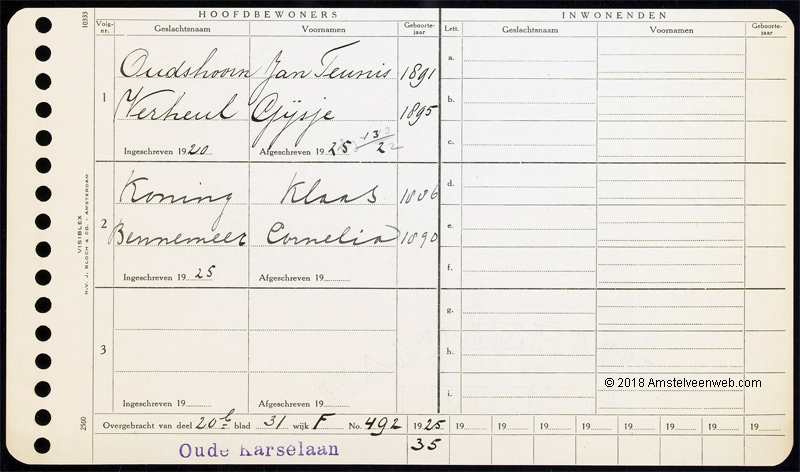 HOOFDBEWONERS
INWONENDEN
Volg-
nr.
Geslachtsnaam
Voornamen
Geboorte-
jaar
Lett.
Geslachtsnaam
Voornamen
Geboorte-
jaar
10333
1
Oudshoorn Jan Teunis 1891
Verheul Gijsje 1895
Ingeschreven 1920 Afgeschreven 1925 13/2
2
Koning Klaas 1886
Bennemeer Cornelia 1890
Ingeschreven 1925 Afgeschreven 19
3
Ingeschreven 19 Afgeschreven 19
a.
b.
c.
d.
e.
f.
g.
h.
i.
VISIBLEX
N.V. J. BLOCH & CO. - AMSTERDAM
2500
© 2018 Amstelveenweb.com
Overgebracht van deel 20b blad 31 wijk F No. 492 1925 19 19 19 19 19 19 19
Oude Karselaan 35